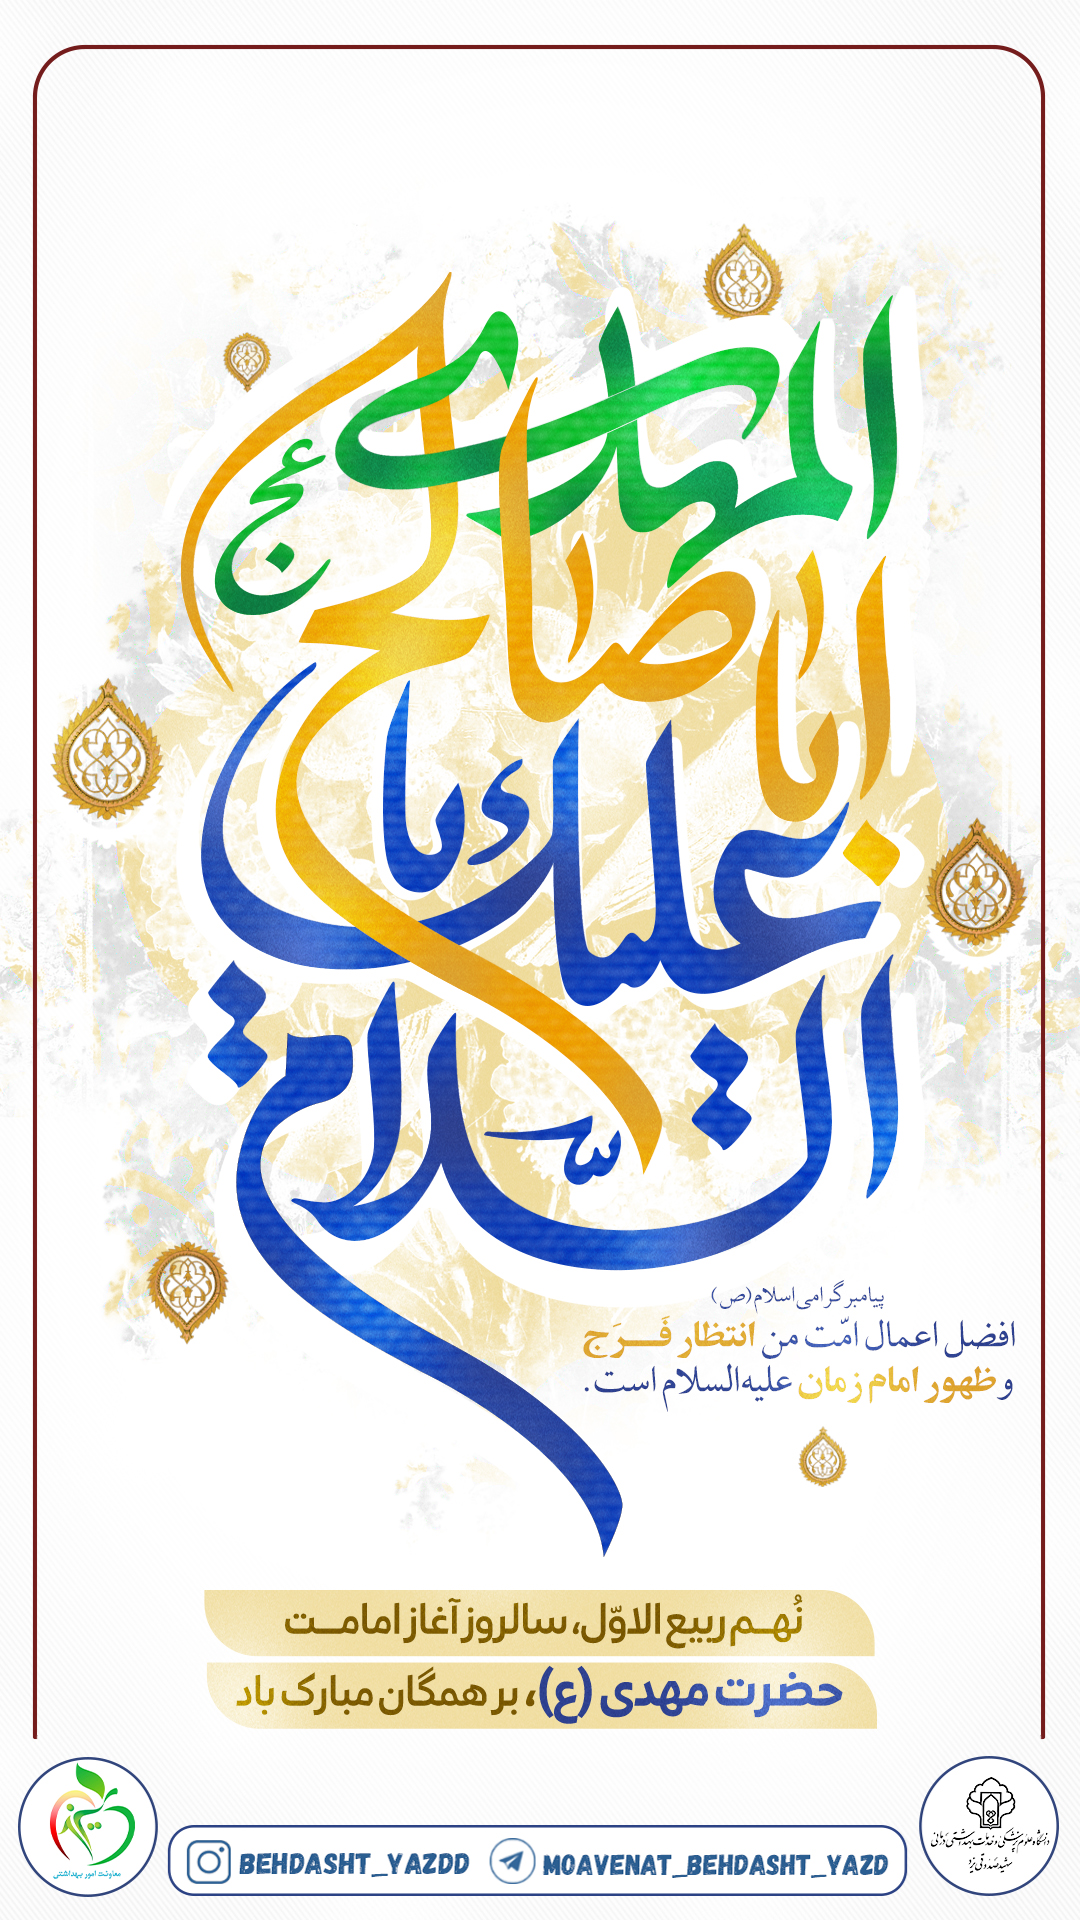 السلام
علیک یا
اباصالح
المهدی عج
پیامبر گرامی اسلام (ص)
افضل اعمال امّت من انتظار فَرَج
و ظهور امام زمان علیه‌السلام است.
نُهم ربیع الاوّل، سالروز آغاز امامت
حضرت مهدی (ع)، بر همگان مبارک باد
معاونت امور بهداشتی
BEHDASHT_YAZDD
MOAVENAT_BEHDASHT_YAZD
دانشگاه علوم پزشکی و خدمات بهداشتی درمانی
شهید صدوقی یزد